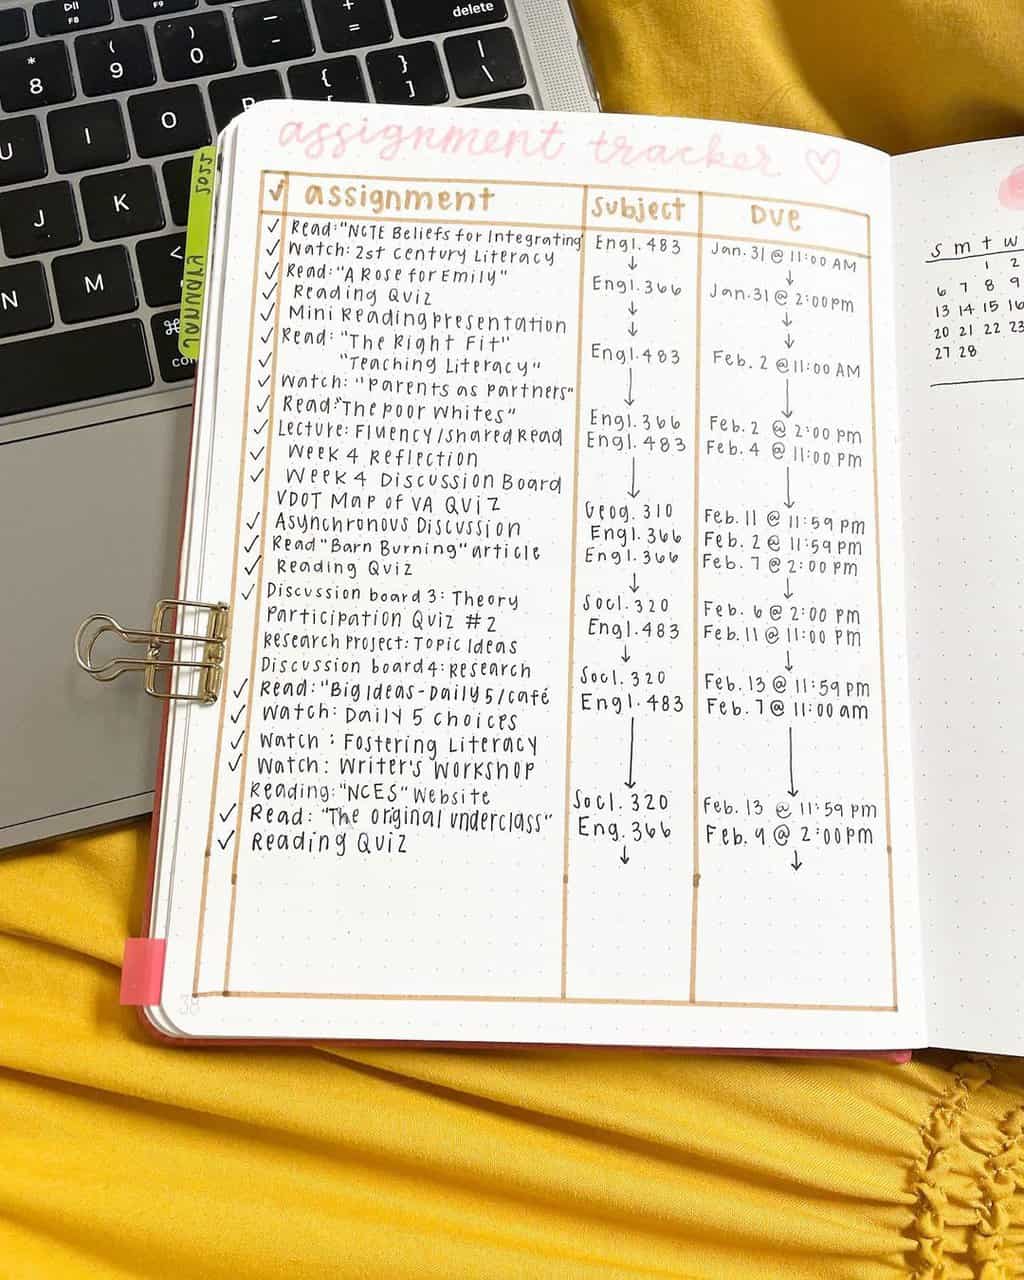 F8
F9
delete
* 8
( 9
) 0
- -
+ =
U
I
O
P
{ [
} ]
| \
J
K
N
M
<
⌘
JANUARY 2022
assignment tracker ♡
✓ assignment Subject Due
✓ Read: "NCTE Beliefs for Integrating Engl. 483 Jan. 31 @ 11:00 AM
✓ Watch: 21st century Literacy ↓ ↓
✓ Read: "A Rose for Emily" Engl. 366 Jan. 31 @ 2:00pm
✓ Reading Quiz ↓ ↓
✓ Mini Reading presentation ↓ ↓
✓ Read: "The Right Fit" Engl. 483 Feb. 2 @ 11:00 AM
✓ "Teaching Literacy" ↓ ↓
✓ Watch: "Parents as Partners"
✓ Read: "The poor Whites" Engl. 366 Feb. 2 @ 2:00 pm
✓ Lecture: Fluency/shared Read Engl. 483 Feb. 4 @ 11:00 pm
✓ Week 4 Reflection ↓ ↓
✓ Week 4 Discussion Board
VDOT Map of VA Quiz Geog. 310 Feb. 11 @ 11:59 pm
✓ Asynchronous Discussion Engl. 366 Feb. 2 @ 11:59 pm
✓ Read "Barn Burning" article Engl. 366 Feb. 7 @ 2:00 pm
✓ Reading Quiz ↓ ↓
✓ Discussion board 3: Theory Socl. 320 Feb. 6 @ 2:00 pm
Participation Quiz #2 Engl. 483 Feb. 11 @ 11:00 pm
Research Project: Topic Ideas ↓ ↓
Discussion board 4: Research Socl. 320 Feb. 13 @ 11:59 pm
✓ Read: "Big Ideas - Daily 5/café Engl. 483 Feb. 7 @ 11:00 am
✓ Watch: Daily 5 choices ↓ ↓
✓ Watch: Fostering Literacy
✓ Watch: Writer's Workshop
Reading: "NCES" Website Socl. 320 Feb. 13 @ 11:59 pm
✓ Read: "The original underclass" Eng. 366 Feb. 9 @ 2:00pm
✓ Reading Quiz ↓ ↓
38
S M T W
1 2
6 7 8 9
13 14 15 16
20 21 22 23
27 28